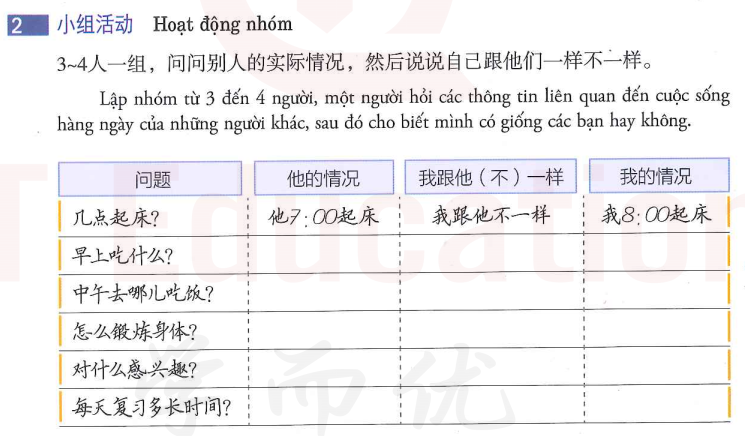 2 小组活动 Hoạt động nhóm
3~4人一组，问问别人的实际情况，然后说说自己跟他们一样不一样。
Lập nhóm từ 3 đến 4 người, một người hỏi các thông tin liên quan đến cuộc sống
hàng ngày của những người khác, sau đó cho biết mình có giống các bạn hay không.
问题 他的情况 我跟他（不）一样 我的情况
几点起床？ 他7:00起床 我跟他不一样 我8:00起床
早上吃什么？
中午去哪儿吃饭？
怎么锻炼身体？
对什么感兴趣？
每天复习多长时间？
T Education
学而优